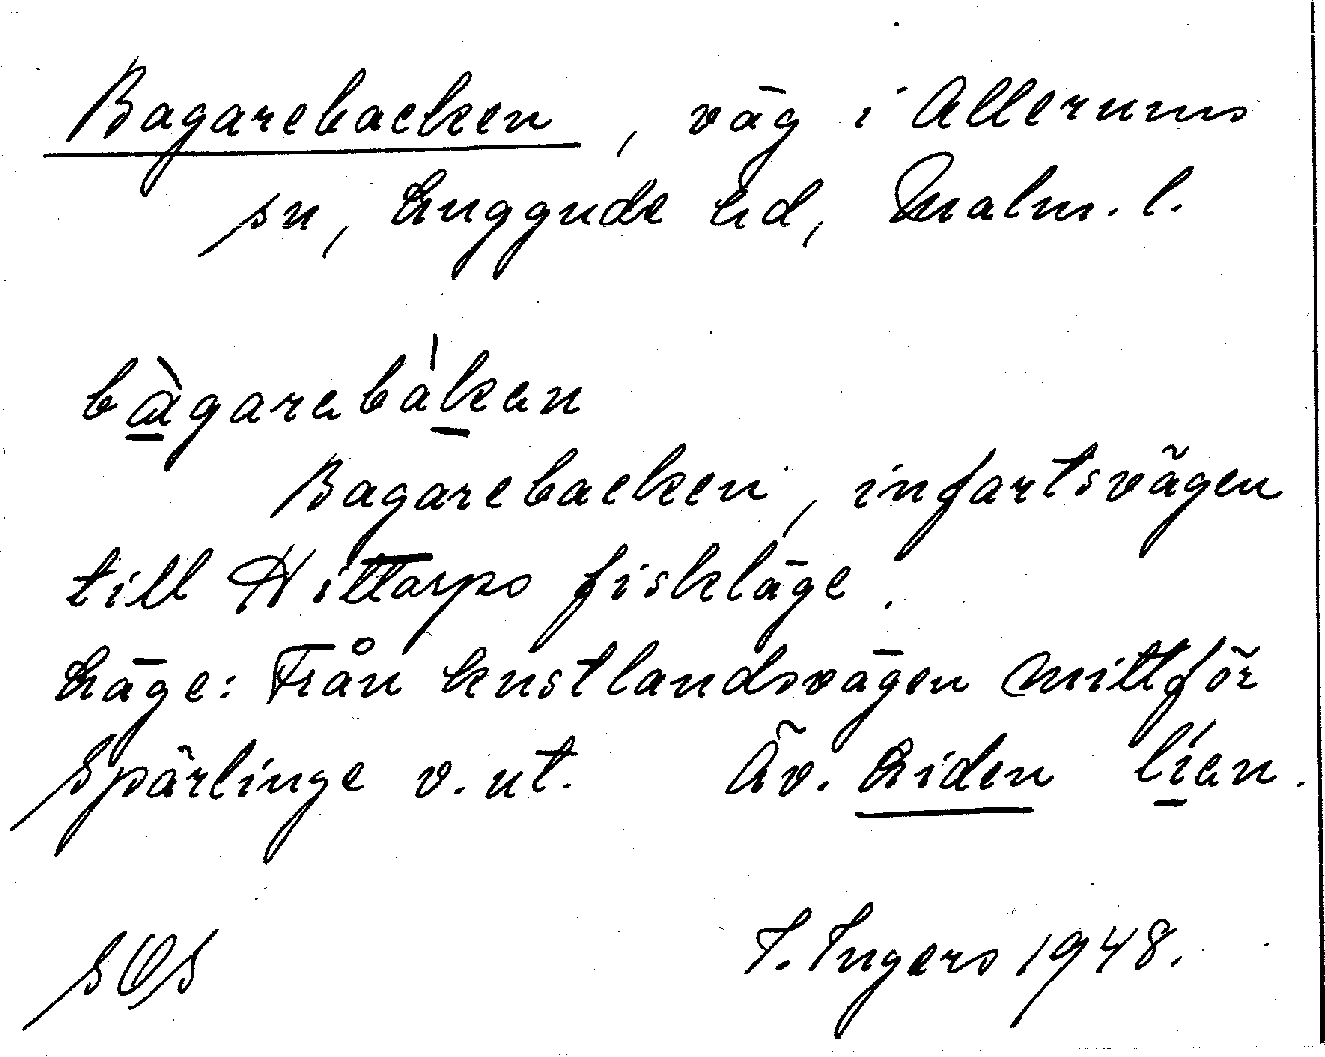 Bagarebacken, väg i Allerums
sn, Luggude hd, Malm. l.
bàgarabàkan
Bagarebacken, infartsvägen
till Hittarps fiskläge.
Läge: Från kustlandsvägen mittför
Spärlinge v. ut. Äv. Liden lían.
SOS I. Ingers 1948.